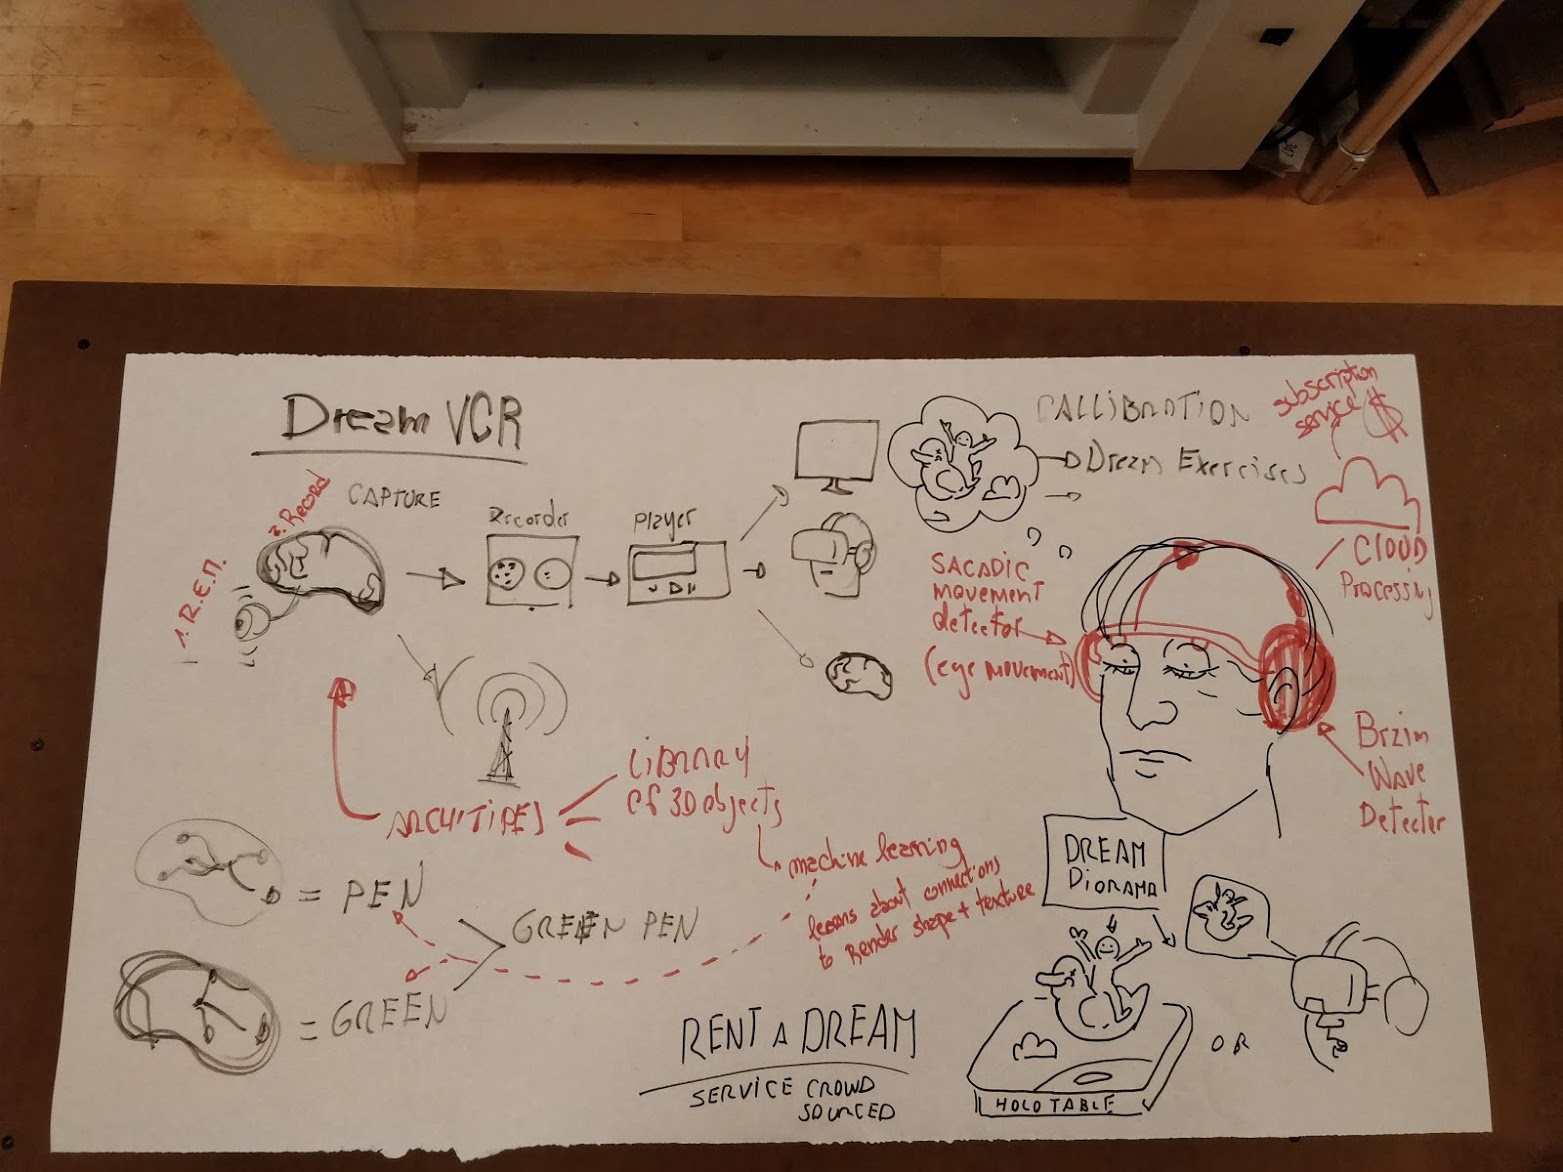 Dream VCR
CAPTURE
1. R.E.M.
2. Record
Recorder
Player
CALLIBRATION
Dream Exercises
subscription
service $
CLOUD
Processing
SACADIC
MOVEMENT
detector
(eye MOVEMENT)
Brain
WAVE
Detector
ARCHITIPES
LIBRARY
OF 3D objects
machine learning
learns about connections
to Render shape + texture
= PEN
GREEN PEN
= GREEN
RENT A DREAM
SERVICE CROWD
SOURCED
DREAM
DIORAMA
OR
HOLO TABLE